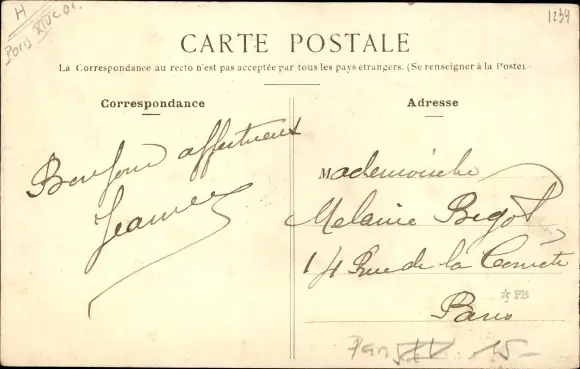 H
Paris XIV
1239
CARTE POSTALE
La Correspondance au recto n'est pas acceptée par tous les pays étrangers. (Se renseigner à la Poste).
Correspondance
Adresse
Bonjour affectueux
Jeanne
Mademoiselle
Melanie Bigot
14 Rue de la Comète
Paris
☆ PB
Paris XV 15-